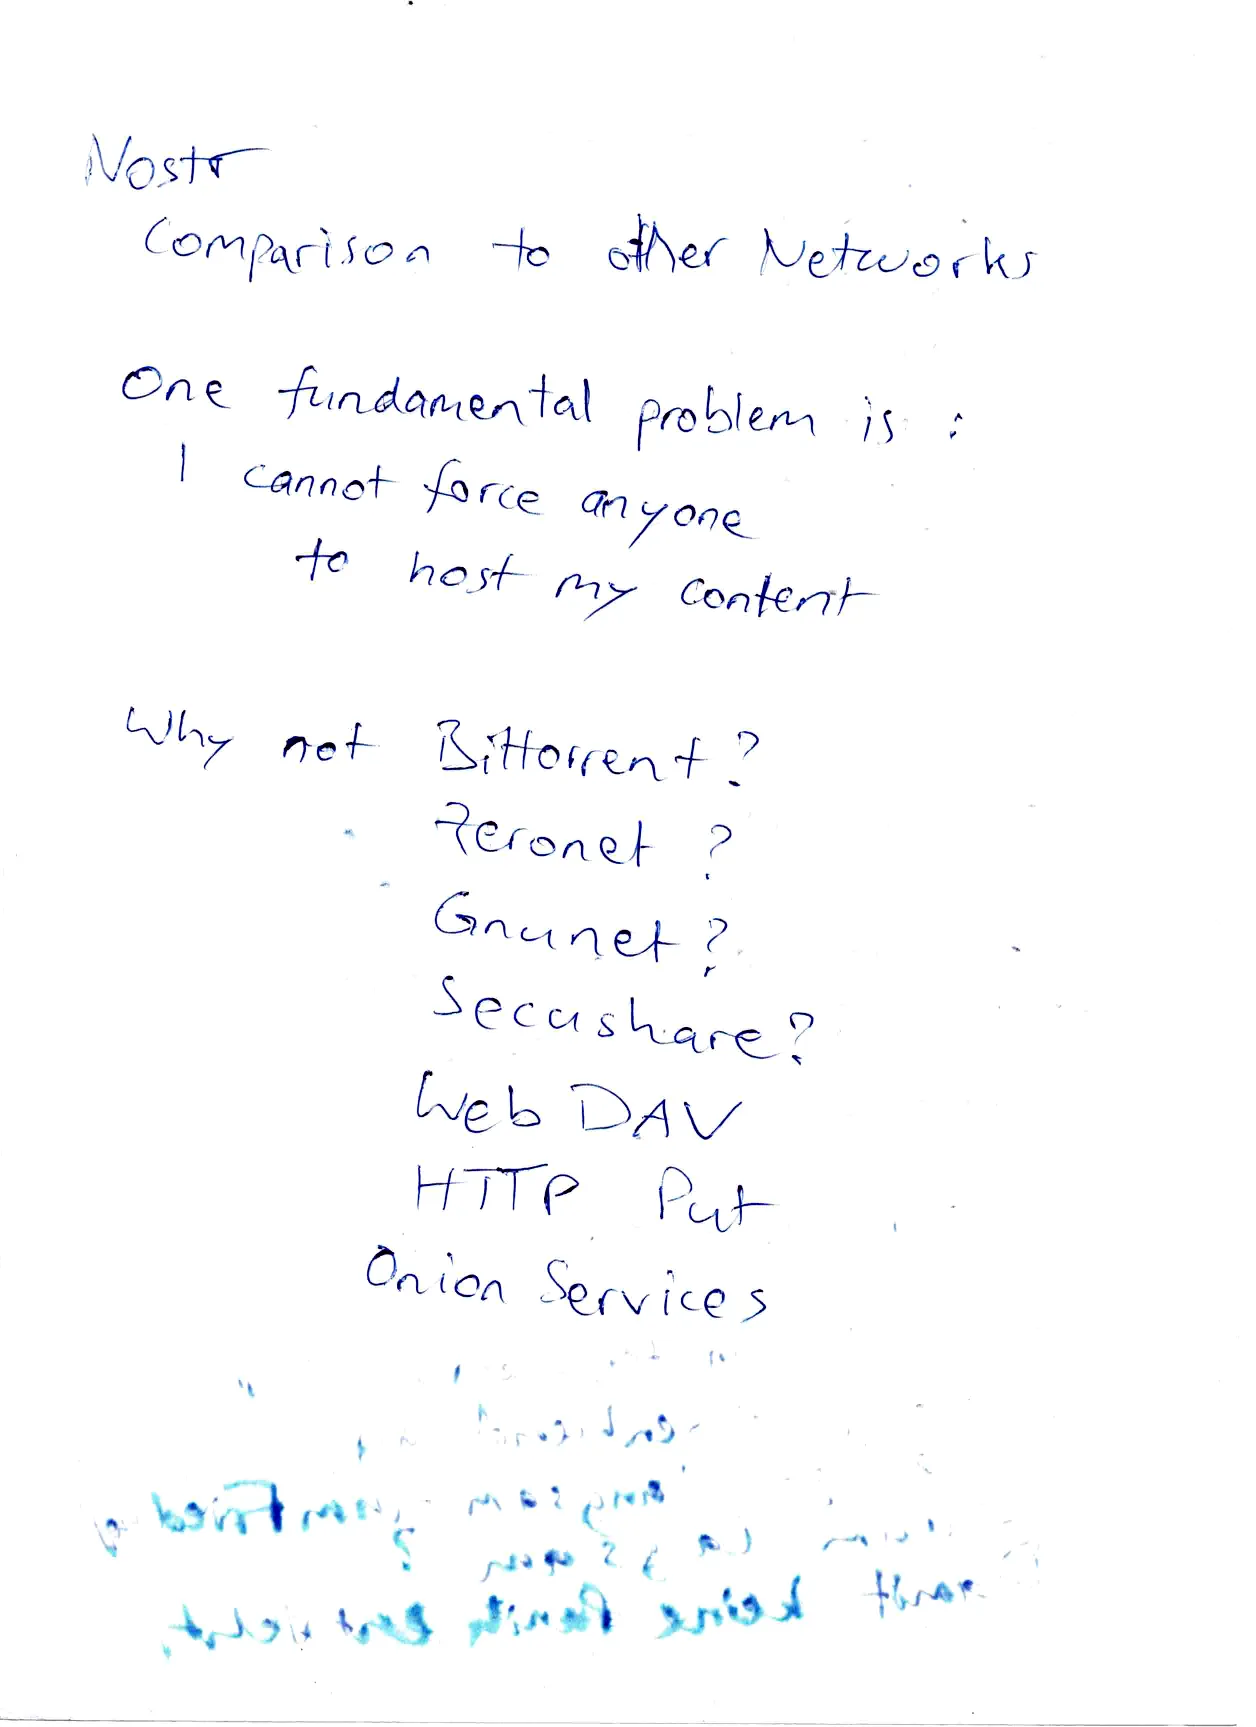 Nostr
Comparison to other Networks
One fundamental problem is :
I cannot force anyone
to host my content
Why not Bittorrent?
Zeronet ?
Gnunet ?
Secushare?
Web DAV
HTTP Put
Onion Services
keine Panik